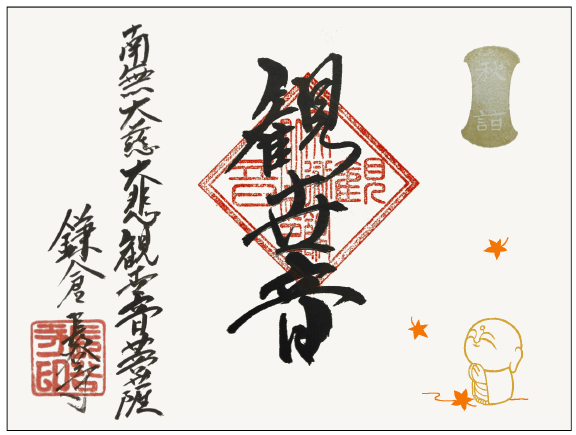 秋詣
観世音
南無大慈大悲観世音菩薩
鎌倉長谷寺
長谷
寺印